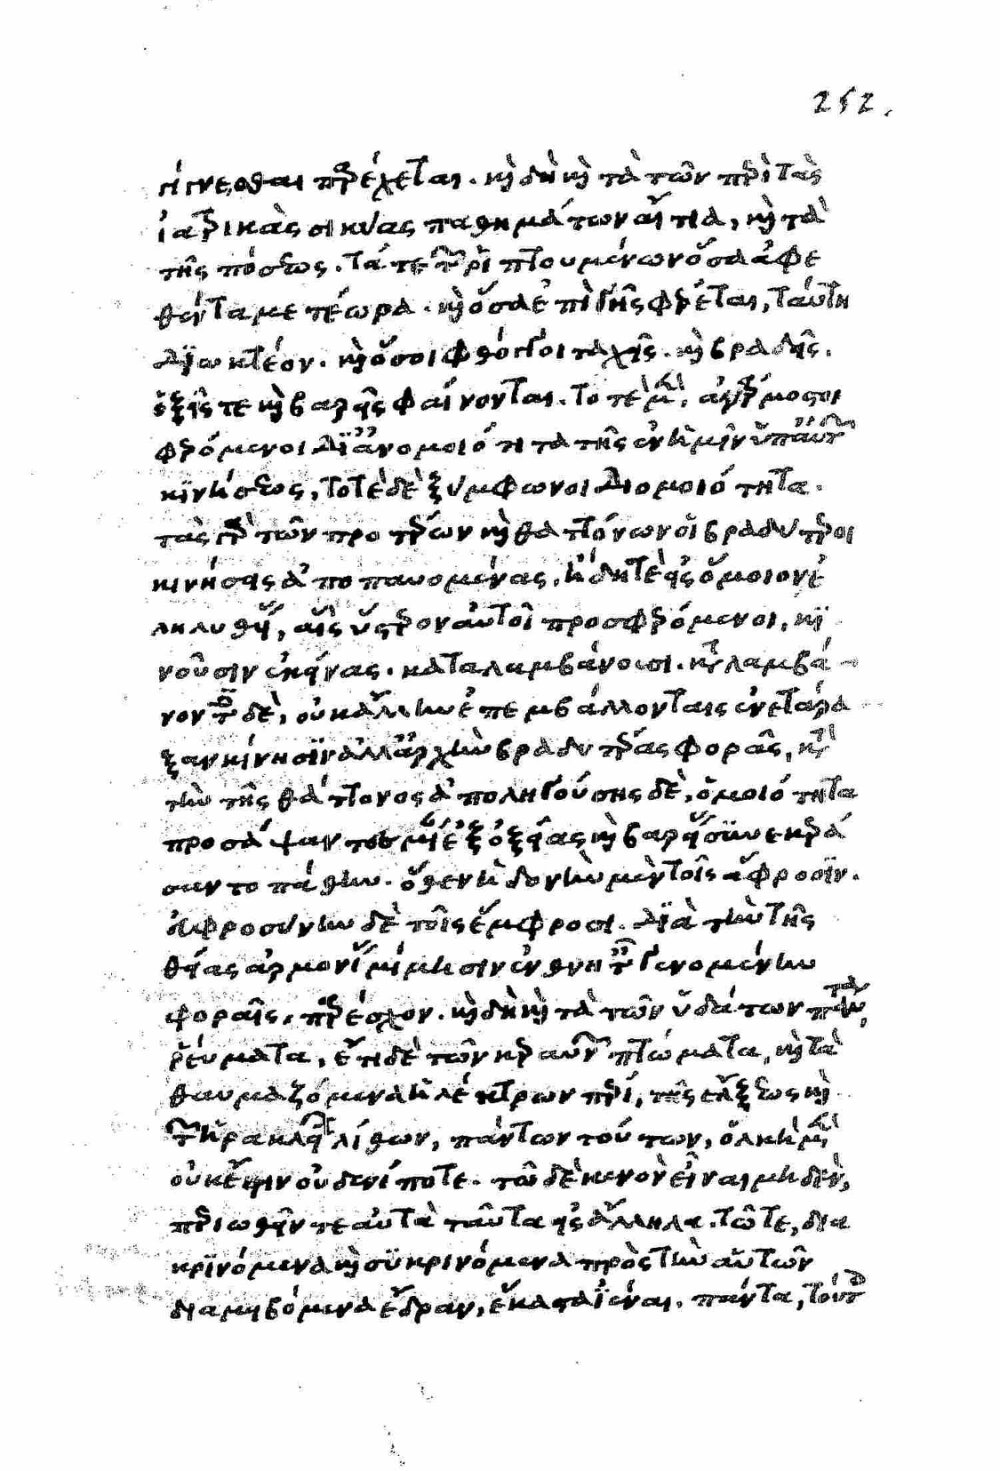 252.
γίγνεσθαι παρέχεται. καὶ δὴ καὶ τὰ τῶν περὶ τὰς
ἰατρικὰς σικύας παθημάτων αἴτια, καὶ τὰ
τῆς πόσεως. τά τε τῶν ῥιπτουμένων ὅσα ἀφε
θέντα μετέωρα. καὶ ὅσα ἐπὶ γῆς φέρεται, ταύτη
διωκτέον. καὶ ὅσοι φθόγγοι ταχεῖς. καὶ βραδεῖς.
ὀξεῖς τε καὶ βαρεῖς φαίνονται. τοτὲ μὲν, ἀνάρμοστοι
φερόμενοι δι' ἀνομοιότητα τῆς ἐν ἡμῖν ὑπ' αὐτῶν
κινήσεως, τοτὲ δὲ ξύμφωνοι δι ὁμοιότητα.
τὰς γὰρ τῶν προτέρων καὶ θαττόνων οἱ βραδύτεροι
κινήσεις ἀποπαυομένας, ἤδη τε εἰς ὅμοιον ἐ
ληλυθυί, αἷς ὕστερον αὐτοὶ προσφερόμενοι, κι
νοῦσιν ἐκείνας. καταλαμβάνουσι. καταλαμβά
νοντες δὲ, οὐκ ἄλλην ἐπεμβάλλοντες ἀνετάρα
ξαν κίνησιν ἀλλ' ἀρχὴν βραδυτέρας φορᾶς, κατὰ
τὴν τῆς θάττονος ἀποληγούσης δὲ, ὁμοιότητα
προσάψαντες μίαν ἐξ ὀξείας καὶ βαρείας ξυνεκερά
σαντο πάθην. ὅθεν ἡδονὴν μὲν τοῖς ἄφροσιν.
εὐφροσύνην δὲ τοῖς ἔμφροσι. διὰ τὴν τῆς
θείας ἁρμονίας μίμησιν ἐν θνηταῖς γενομένην
φοραῖς, παρέσχον. καὶ δὴ καὶ τὰ τῶν ὑδάτων πάντα
ῥεύματα, ἔτι δὲ τῶν κεραυνῶν πτώματα, καὶ τὰ
θαυμαζόμενα ἠλέκτρων περὶ, τῆς ἕλξεως καὶ
τῶν Ἡρακλείων λίθων, πάντων τούτων, ὁλκὴ μὲν
οὐκ ἔστιν οὐδενί ποτε. τὸ δὲ κενὸν εἶναι μηδὲν,
περιωθεῖν τε αὐτὰ ταῦτα εἰς ἄλληλα. τό τε, δια
κρινόμενα καὶ συγκρινόμενα πρὸς τὴν αὑτῶν
διαμειβόμενα ἕδραν, ἕκαστα ἰέναι. πάντα, τούτοις